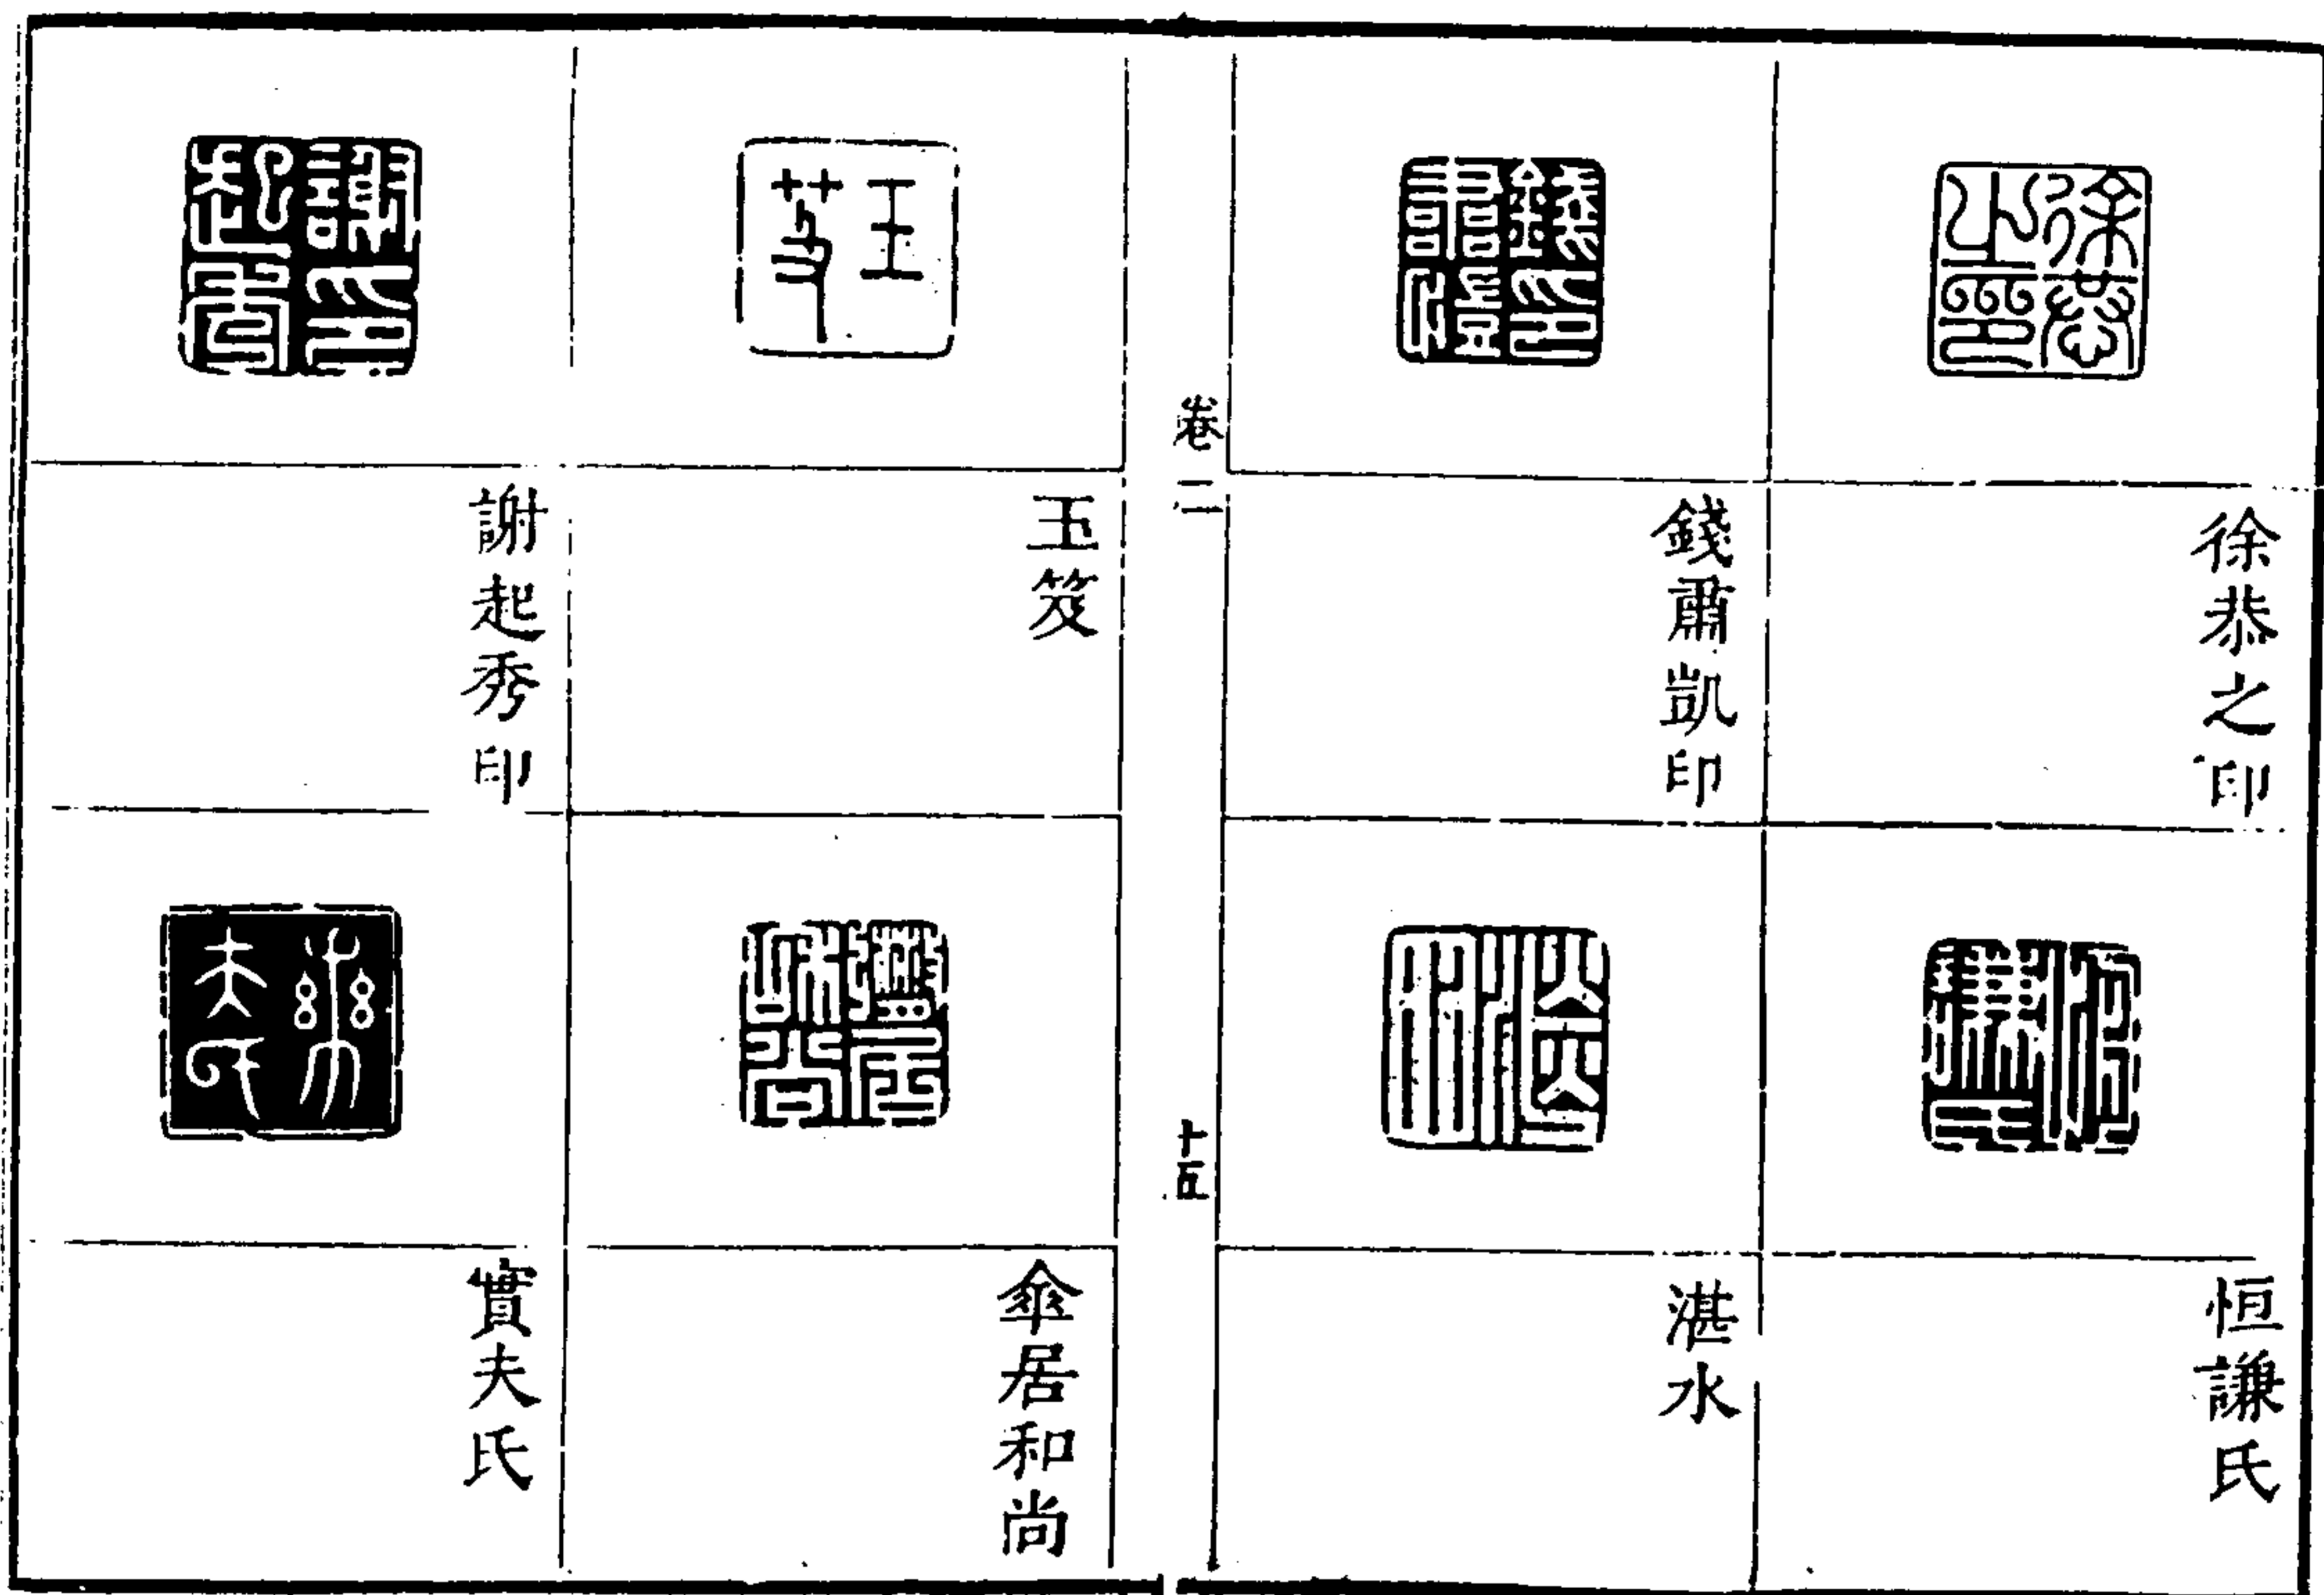 徐恭之印
恒謙氏
錢肅凱印
湛水
卷二
十五
玉笈
傘居和尚
謝起秀印
實夫氏